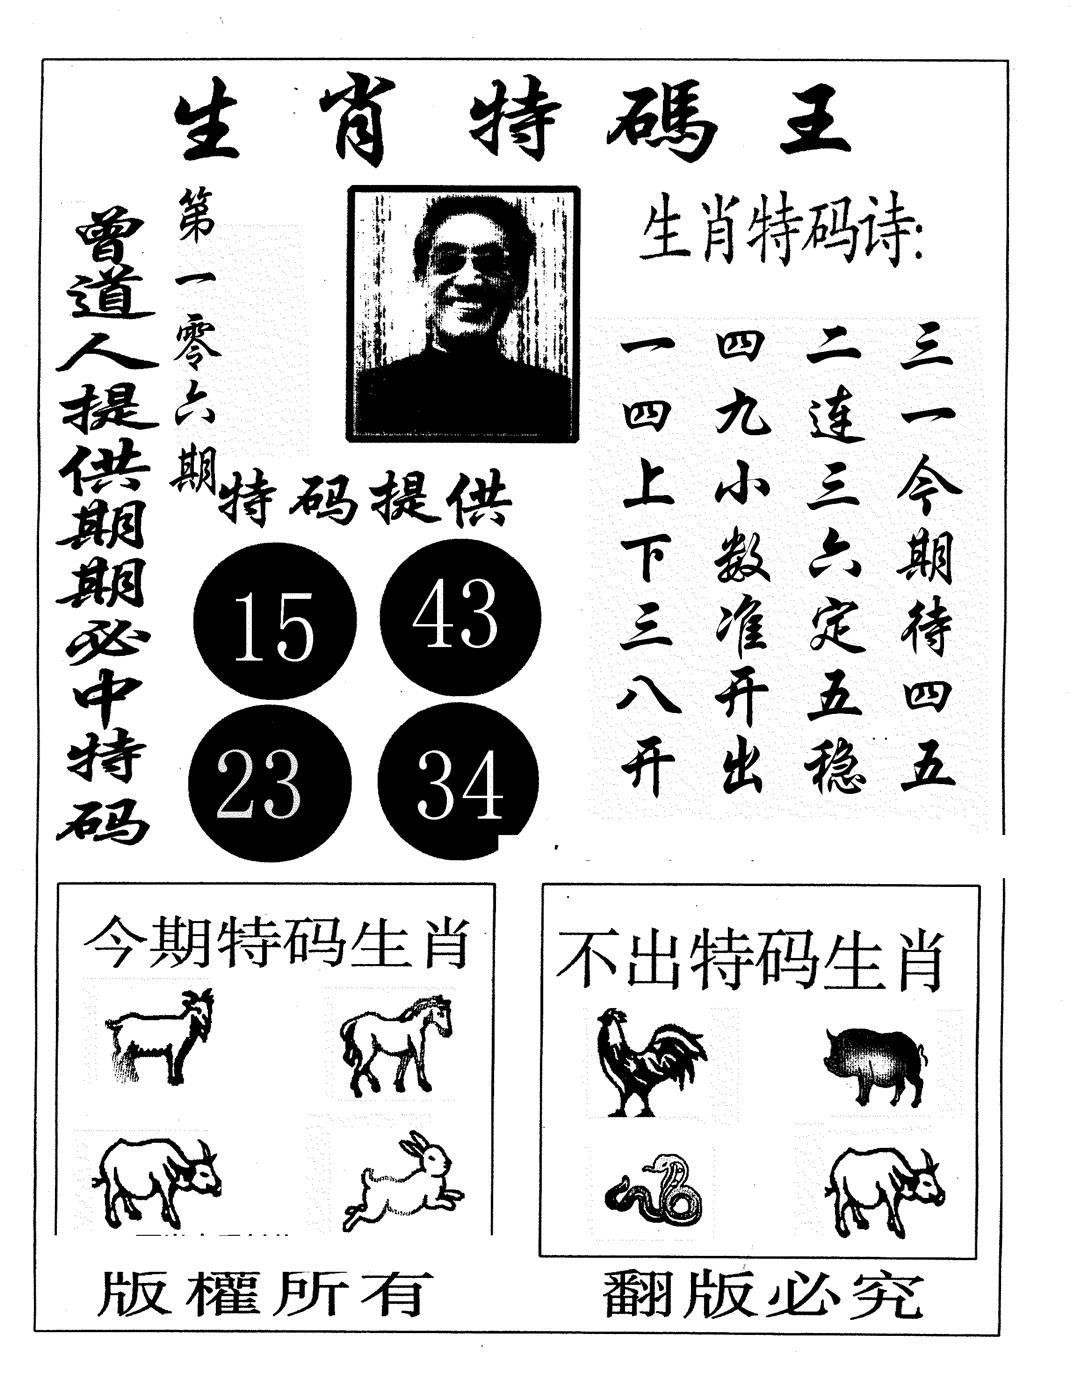 生肖特碼王
曾道人提供期期必中特码
第一零六期
生肖特码诗:
三一今期待四五
二连三六定五稳
四九小数准开出
一四上下三八开
特码提供
15 43
23 34
今期特码生肖
不出特码生肖
版權所有
翻版必究